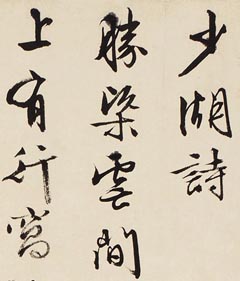 少湖詩
勝槩雲間
上有行窩